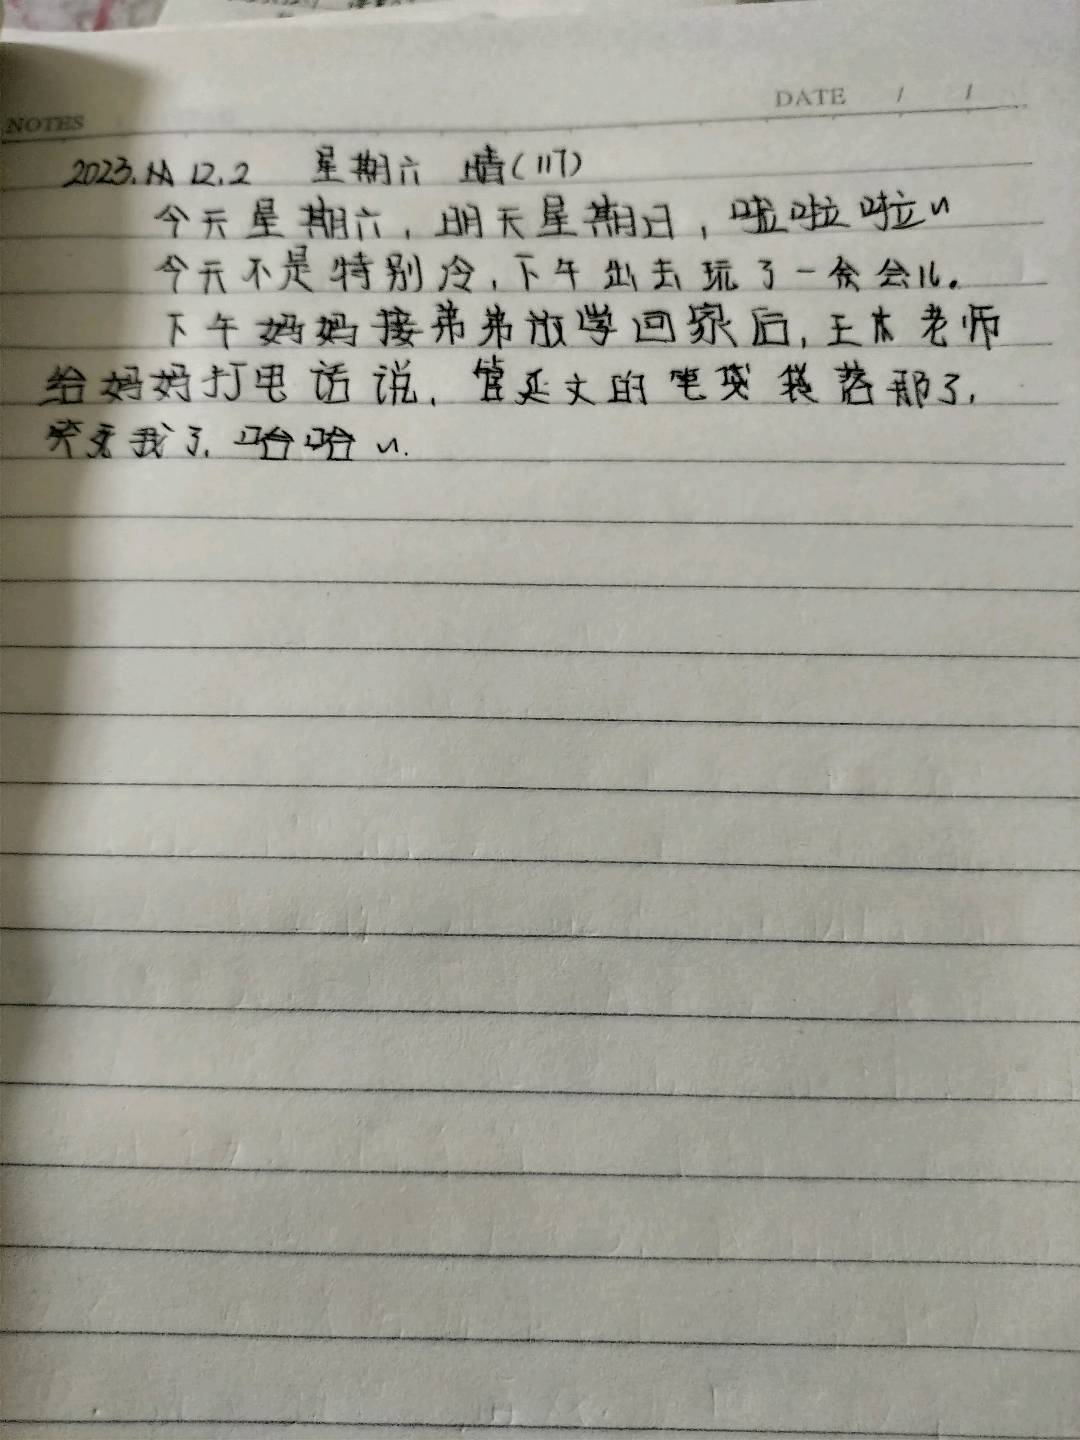 DATE / /
NOTES
2023. 12.2 星期六 晴(117)
今天星期六，明天星期日，啦啦啦~
今天不是特别冷，下午出去玩了一会儿。
下午妈妈接弟弟放学回家后，王木老师
给妈妈打电话说，管延文的笔袋落那了，
笑死我了，哈哈~.